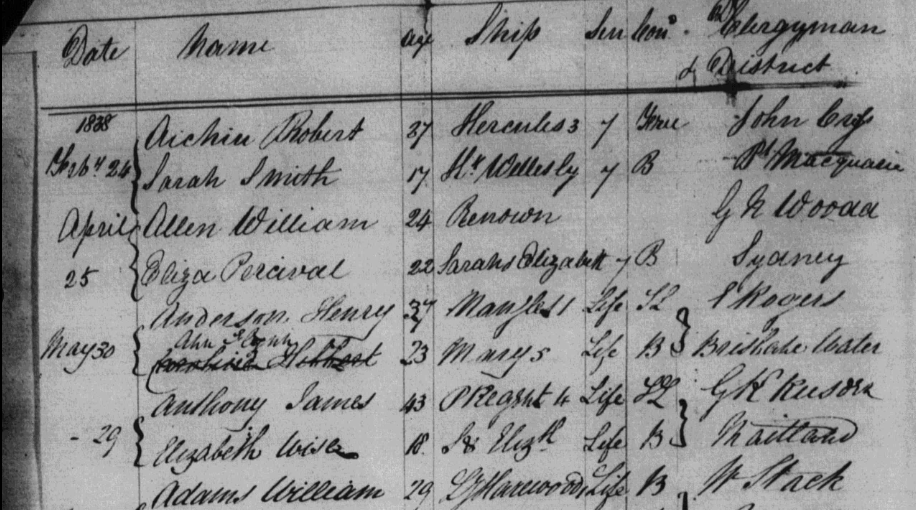 Date Name age Ship Sen Con.d Clergyman
& District
1838
Aichin Robert 27 Hercules 3 7 Free John Cross
24 Sarah Smith 17 Wellesly 7 B Pt Macquarie
April Allen William 24 Renown G N Woodd
25 Eliza Percival 22 Sarah & Elizabeth 7 B Sydney
Anderson Henry 37 Mangles 1 Life TL Rogers
Ann
May 30 23 Mary 5 Life B Brisbane Water
Anthony James 43 P Regent 4 Life TL G K Rusden
- 29 Elizabeth Wise 18 S & Elizth Life B Maitland
Adams William 29 Ly Harewood Life B W Stack